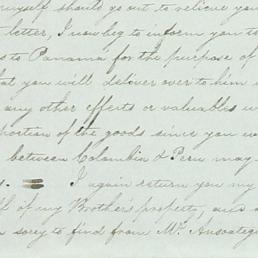 myself should go out to relieve you
letter, I now beg to inform you t
s to Panama for the purpose of
at you will deliver over to him
any other effects or valuables w
portion of the goods since you w
between Colombia & Peru may
s. = I again return you my
ff of my Brother's property, and
sorry to find from Mr. Ansoateg